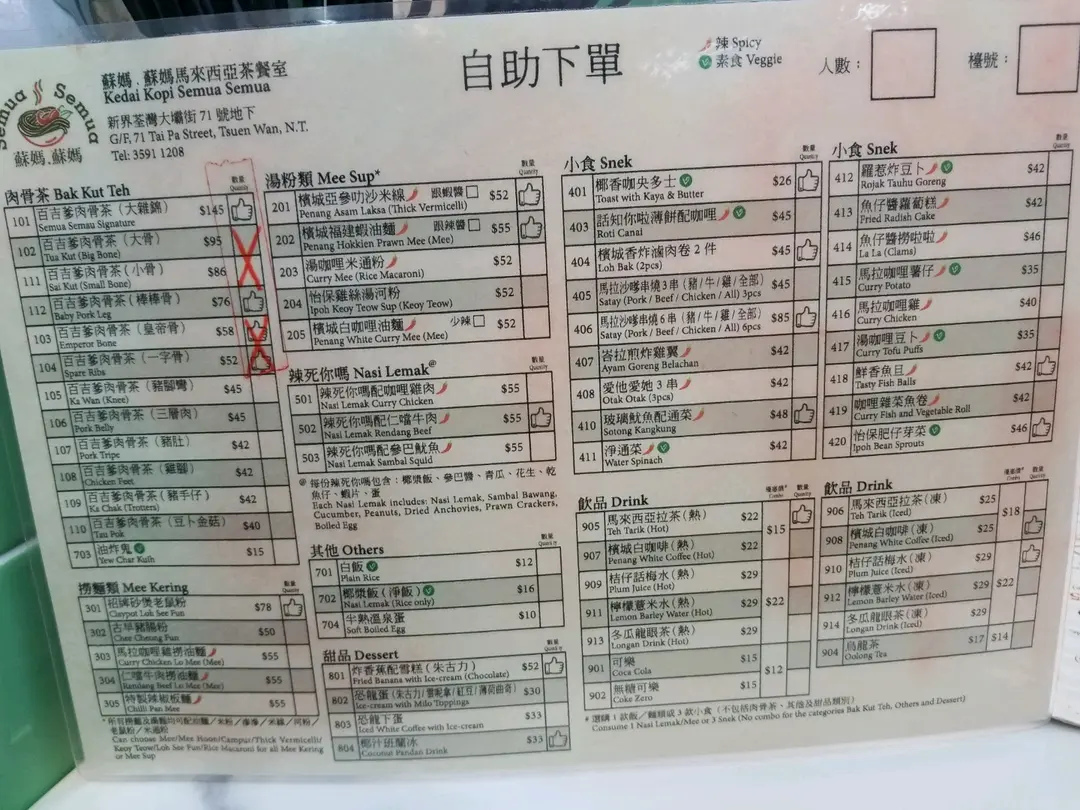 Semua Semua
蘇媽.蘇媽
蘇媽.蘇媽馬來西亞茶餐室
Kedai Kopi Semua Semua
新界荃灣大壩街 71 號地下
G/F, 71 Tai Pa Street, Tsuen Wan, N.T.
Tel: 3591 1208
自助下單
辣 Spicy
素食 Veggie
人數：
檯號：
肉骨茶 Bak Kut Teh
數量
Quantity
101 百吉爹肉骨茶（大雜錦） $145
Semua Semau Signature
102 百吉爹肉骨茶（大骨） $95
Tua Kut (Big Bone)
111 百吉爹肉骨茶（小骨） $86
Sai Kut (Small Bone)
112 百吉爹肉骨茶（棒棒骨） $76
Baby Pork Leg
103 百吉爹肉骨茶（皇帝骨） $58
Emperor Bone
104 百吉爹肉骨茶（一字骨） $52
Spare Ribs
105 百吉爹肉骨茶（豬腳彎） $45
Ka Wan (Knee)
106 百吉爹肉骨茶（三層肉） $45
Pork Belly
107 百吉爹肉骨茶（豬肚） $42
Pork Tripe
108 百吉爹肉骨茶（雞腳） $42
Chicken Feet
109 百吉爹肉骨茶（豬手仔） $42
Ka Chak (Trotters)
110 百吉爹肉骨茶（豆卜金菇） $40
Tau Pok
703 油炸鬼 $15
Yew Char Kuih
撈麵類 Mee Kering
數量
Quantity
301 招牌砂煲老鼠粉 $78
Claypot Loh See Fun
302 古早豬腸粉 $50
Chee Cheong Fun
303 馬拉咖喱雞撈油麵 $55
Curry Chicken Lo Mee (Mee)
304 仁噹牛肉撈油麵 $55
Rendang Beef Lo Mee (Mee)
305 特製辣椒板麵 $55
Chilli Pan Mee
Can choose Mee/Mee Hoon/Campur/Thick Vermicelli/
Keoy Teow/Loh See Fun/Rice Macaroni for all Mee Kering
or Mee Sup
湯粉類 Mee Sup*
數量
Quantity
201 檳城亞參叻沙米線 跟蝦醬 $52
Penang Asam Laksa (Thick Vermicelli)
202 檳城福建蝦油麵 跟辣醬 $55
Penang Hokkien Prawn Mee (Mee)
203 湯咖哩米通粉 $52
Curry Mee (Rice Macaroni)
204 怡保雞絲湯河粉 $52
Ipoh Kai Si Hor Sup (Keoy Teow)
205 檳城白咖哩油麵 少辣 $52
Penang White Curry Mee (Mee)
辣死你嗎 Nasi Lemak@
數量
Quantity
501 辣死你嗎配咖哩雞肉 $55
Nasi Lemak Curry Chicken
502 辣死你嗎配仁噹牛肉 $55
Nasi Lemak Rendang Beef
503 辣死你嗎配參巴魷魚 $55
Nasi Lemak Sambal Squid
@ 每份辣死你嗎包含：椰漿飯、參巴醬、青瓜、花生、乾
魚仔、蝦片、蛋
Each Nasi Lemak includes: Nasi Lemak, Sambal Bawang,
Cucumber, Peanuts, Dried Anchovies, Prawn Crackers,
Boiled Egg
其他 Others
數量
Quantity
701 白飯 $12
Plain Rice
702 椰漿飯（淨飯） $16
Nasi Lemak (Rice only)
704 半熟溫泉蛋 $10
Soft Boiled Egg
甜品 Dessert
數量
Quantity
801 炸香蕉配雪糕（朱古力） $52
Fried Banana with Ice-cream (Chocolate)
802 恐龍蛋（朱古力/雲呢拿/紅豆/薄荷曲奇） $30
Ice-cream with Milo Toppings
803 恐龍下蛋 $33
Iced White Coffee with Ice-cream
804 椰汁班蘭冰 $33
Coconut Pandan Drink
小食 Snek
數量
Quantity
401 椰香咖央多士 $26
Toast with Kaya & Butter
403 話知你啦薄餅配咖喱 $45
Roti Canai
404 檳城香炸滷肉卷 2 件 $45
Loh Bak (2pcs)
405 馬拉沙嗲串燒 3 串（豬/牛/雞/全部） $45
Satay (Pork / Beef / Chicken / All) 3pcs
406 馬拉沙嗲串燒 6 串（豬/牛/雞/全部） $85
Satay (Pork / Beef / Chicken / All) 6pcs
407 峇拉煎炸雞翼 $42
Ayam Goreng Belachan
408 愛他愛她 3 串 $42
Otak Otak (3pcs)
410 玻璃魷魚配通菜 $48
Sotong Kangkung
411 淨通菜 $42
Water Spinach
飲品 Drink
優惠價*
Combo
數量
Quantity
905 馬來西亞拉茶（熱） $22 $15
Teh Tarik (Hot)
907 檳城白咖啡（熱） $22
Penang White Coffee (Hot)
909 桔仔話梅水（熱） $29
Plum Juice (Hot)
911 檸檬薏米水（熱） $29 $22
Lemon Barley Water (Hot)
913 冬瓜龍眼茶（熱） $29
Longan Drink (Hot)
901 可樂 $15
Coca Cola
$12
902 無糖可樂 $15
Coke Zero
* 選購 1 款飯／麵類或 3 款小食（不包括肉骨茶、其他及甜品類別）
Consume 1 Nasi Lemak/Mee or 3 Snek (No combo for the categories Bak Kut Teh, Others and Dessert)
小食 Snek
數量
Quantity
412 羅惹炸豆卜 $42
Rojak Tauhu Goreng
413 魚仔醬蘿蔔糕 $42
Fried Radish Cake
414 魚仔醬撈啦啦 $46
La La (Clams)
415 馬拉咖哩薯仔 $35
Curry Potato
416 馬拉咖喱雞 $40
Curry Chicken
417 湯咖哩豆卜 $35
Curry Tofu Puffs
418 鮮香魚旦 $42
Tasty Fish Balls
419 咖哩雜菜魚卷 $42
Curry Fish and Vegetable Roll
420 怡保肥仔芽菜 $46
Ipoh Bean Sprouts
飲品 Drink
優惠價*
Combo
數量
Quantity
906 馬來西亞拉茶（凍） $25
Teh Tarik (Iced)
$18
908 檳城白咖啡（凍） $25
Penang White Coffee (Iced)
910 桔仔話梅水（凍） $29
Plum Juice (Iced)
912 檸檬薏米水（凍） $29 $22
Lemon Barley Water (Iced)
914 冬瓜龍眼茶（凍） $29
Longan Drink (Iced)
904 烏龍茶 $17 $14
Oolong Tea